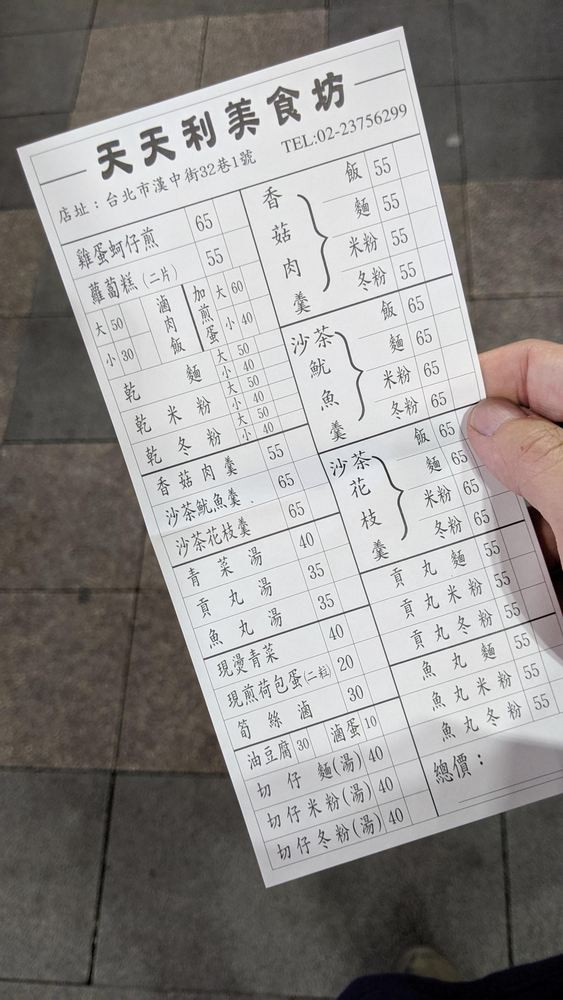 天天利美食坊
店址：台北市漢中街32巷1號 TEL:02-23756299
雞蛋蚵仔煎 65
蘿蔔糕(二片) 55
滷肉飯 大 50 小 30
加煎蛋 大 60 小 40
乾麵 大 50 小 40
乾米粉 大 50 小 40
乾冬粉 大 50 小 40
香菇肉羹 55
沙茶魷魚羹 65
沙茶花枝羹 65
青菜湯 40
貢丸湯 35
魚丸湯 35
現燙青菜 40
現煎荷包蛋(二粒) 20
筍絲滷 30
油豆腐 30 滷蛋 10
切仔麵(湯) 40
切仔米粉(湯) 40
切仔冬粉(湯) 40
香菇肉羹
飯 55
麵 55
米粉 55
冬粉 55
沙茶魷魚羹
飯 65
麵 65
米粉 65
冬粉 65
沙茶花枝羹
飯 65
麵 65
米粉 65
冬粉 65
貢丸麵 55
貢丸米粉 55
貢丸冬粉 55
魚丸麵 55
魚丸米粉 55
魚丸冬粉 55
總價：